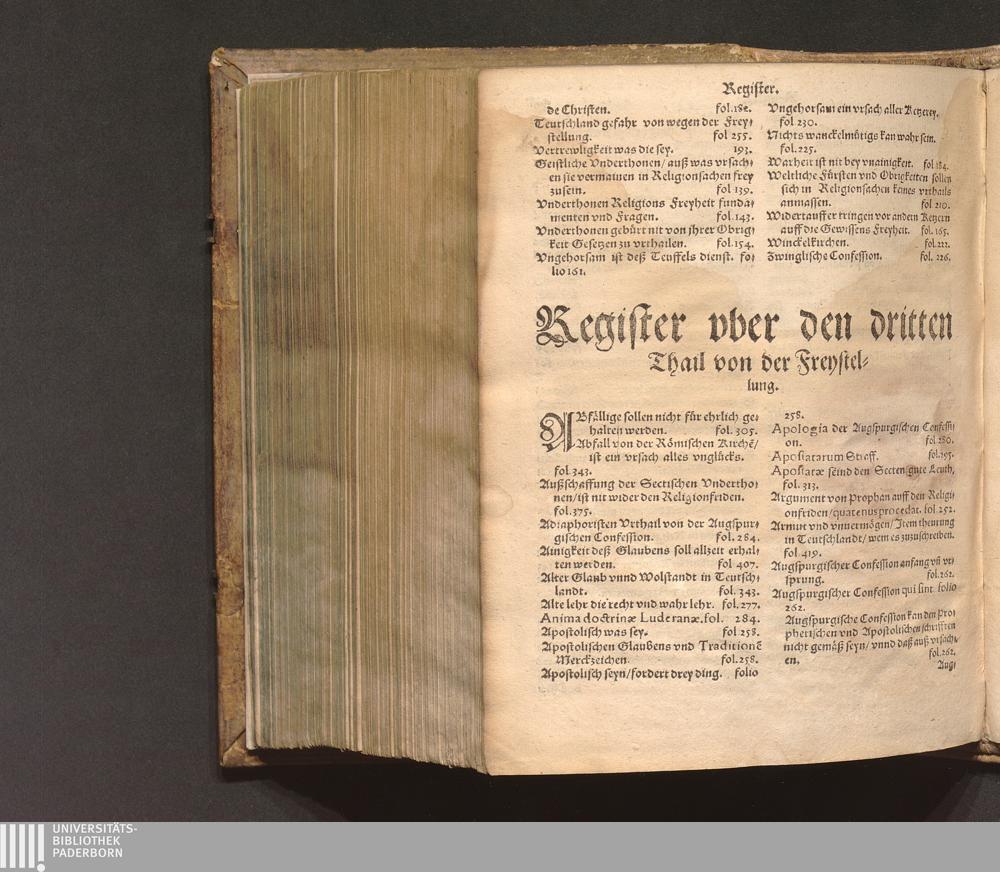 Register.
de Christen. fol.182.
Teutschland gefahr von wegen der Frey-
stellung. fol 255.
Vertrewligkeit was die sey. 193.
Geistliche Vnderthonen/ auß was vrsach-
en sie vermainen in Religionsachen frey
zusein. fol 139.
Vnderthonen Religions Freyheit funda-
menten vnd Fragen. fol.143.
Vnderthonen gebürt nit von jhrer Obrig-
keit Gesetzen zu vrthailen. fol.154.
Vngehorsam ist deß Teuffels dienst. fo-
lio 161.
Vngehorsam ein vrsach aller Ketzerey.
fol 230.
Nichts wanckelmütigs kan wahr sein.
fol.225.
Warheit ist nit bey vnainigkeit. fol 184.
Weltliche Fürsten vnd Obrigkeiten sollen
sich in Religionsachen kaines vrthails
anmassen. fol 210.
Widertauffer tringen vor andern Ketzern
auff die Gewissens Freyheit. fol.165.
Winckelkirchen. fol.222.
Zwinglische Confession. fol. 226.
Register vber den dritten
Thail von der Freystel-
lung.
ABfällige sollen nicht für ehrlich ge-
halten werden. fol. 305.
Abfall von der Römischen Kirchē/
ist ein vrsach alles vnglücks.
fol.343.
Außschaffung der Sectischen Vndertho-
nen/ist nit wider den Religionfriden.
fol.375.
Adiaphoristen Vrthail von der Augspur-
gischen Confession. fol. 284.
Ainigkeit deß Glaubens soll allzeit erhal-
ten werden. fol 407.
Alter Glaub vnnd Wolstandt in Teutsch-
landt. fol. 343.
Alte lehr die recht vnd wahr lehr. fol.277.
Anima doctrinæ Luderanæ. fol. 284.
Apostolisch was sey. fol 258.
Apostolischen Glaubens vnd Traditionē
Merckzeichen. fol.258.
Apostolisch seyn/fordert drey ding. folio
258.
Apologia der Augspurgischen Confessi-
on. fol 280.
Apostatarum Straff. fol.195.
Apostatæ seind den Secten gute Leuth,
fol. 313.
Argument von Prophan auff den Religi-
onfriden/quatenus procedat. fol 252.
Armut vnd vnuermögen/ Item theurung
in Teutschlandt/ wem es zuzuschreiben.
fol 419.
Augspurgischer Confession anfang vñ vr-
sprung. fol.262.
Augspurgischer Confession qui sint folio
262.
Augspurgische Confession kan den Pro-
phetischen vnd Apostolischen schrifften
nicht gemäß seyn/ vnnd daß auß vrsach-
en. fol.262.
Aug-
UNIVERSITÄTS-
BIBLIOTHEK
PADERBORN